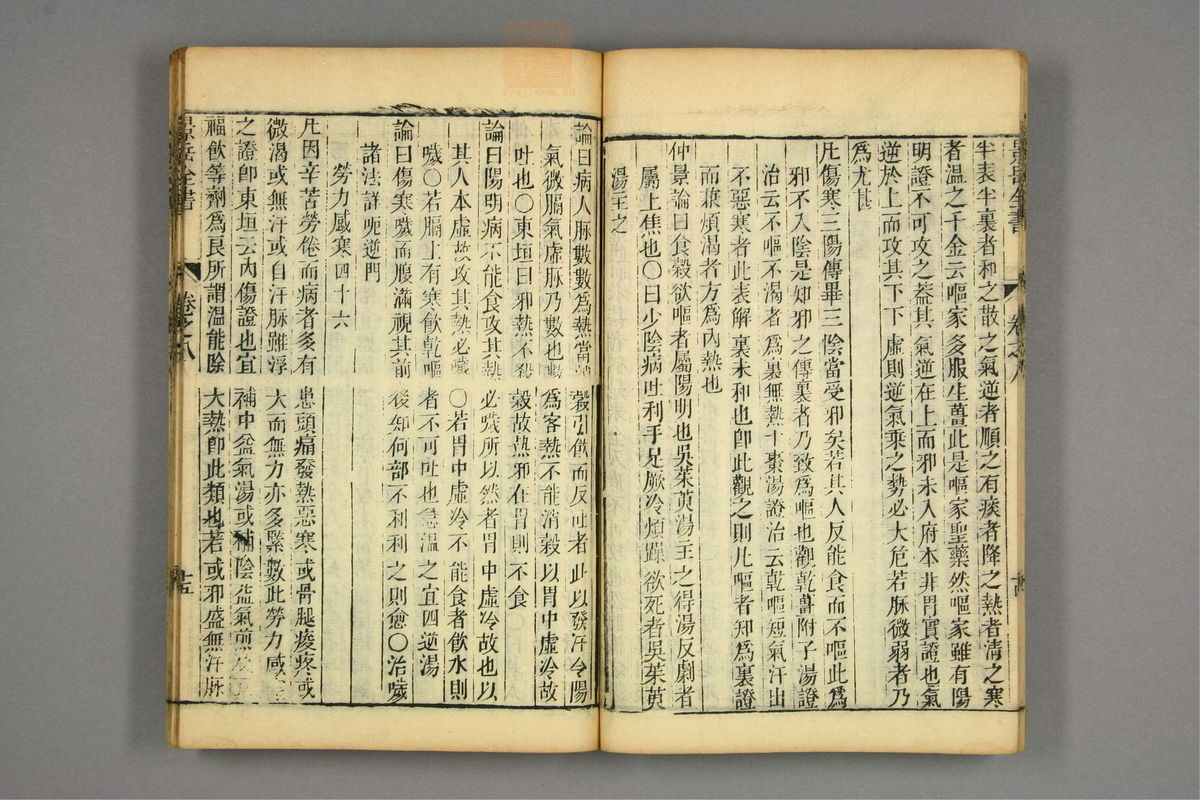 半表半裏者和之散之氣逆者順之有痰者降之熱者清之寒
者溫之千金云嘔家多服生薑此是嘔家聖藥然嘔家雖有陽
明證不可攻之蓋其氣逆在上而邪未入府本非胃實證也氣
逆於上而攻其下下虛則逆氣乘之勢必大危若脉微弱者乃
為尤甚
凢傷寒三陽傳畢三陰當受邪矣若其人反能食而不嘔此爲
邪不入陰是知邪之傳裏者乃致爲嘔也觀乾薑附子湯證
治云不嘔不渴者爲裏無熱十棗湯證治云乾嘔短氣汗出
不惡寒者此表解裏未和也卽此觀之則凢嘔者知爲裏證
而兼煩渴者方爲內熱也
仲景論曰食穀欲嘔者屬陽明也吳茱萸湯主之得湯反劇者
屬上焦也〇曰少陰病吐利手足厥冷煩躁欲死者吳茱萸
湯主之
景岳全書 卷之八 十四
論曰病人脉數數爲熱當消穀引食而反吐者此以發汗令陽
氣微膈氣虛脉乃數也數爲客熱不能消穀以胃中虛冷故
吐也〇東垣曰邪熱不殺穀故熱邪在胃則不食
論曰陽明病不能食攻其熱必噦所以然者胃中虛冷故也以
其人本虛故攻其熱必噦〇若胃中虛冷不能食者飲水則
噦〇若膈上有寒飲乾嘔者不可吐也急溫之宜四逆湯
論曰傷寒噦而腹滿視其前後知何部不利利之則愈〇治噦
諸法詳呃逆門
勞力感寒四十六
凢因辛苦勞倦而病者多有患頭痛發熱惡寒或骨腿痠疼或
微渴或無汗或自汗脉雖浮大而無力亦多緊數此勞力感
之證卽東垣云內傷證也宜補中益氣湯或補陰益氣煎
福飲等劑爲良所謂溫能除大熱卽此類也若或邪盛無汗脉
景岳全書 卷之八 十五